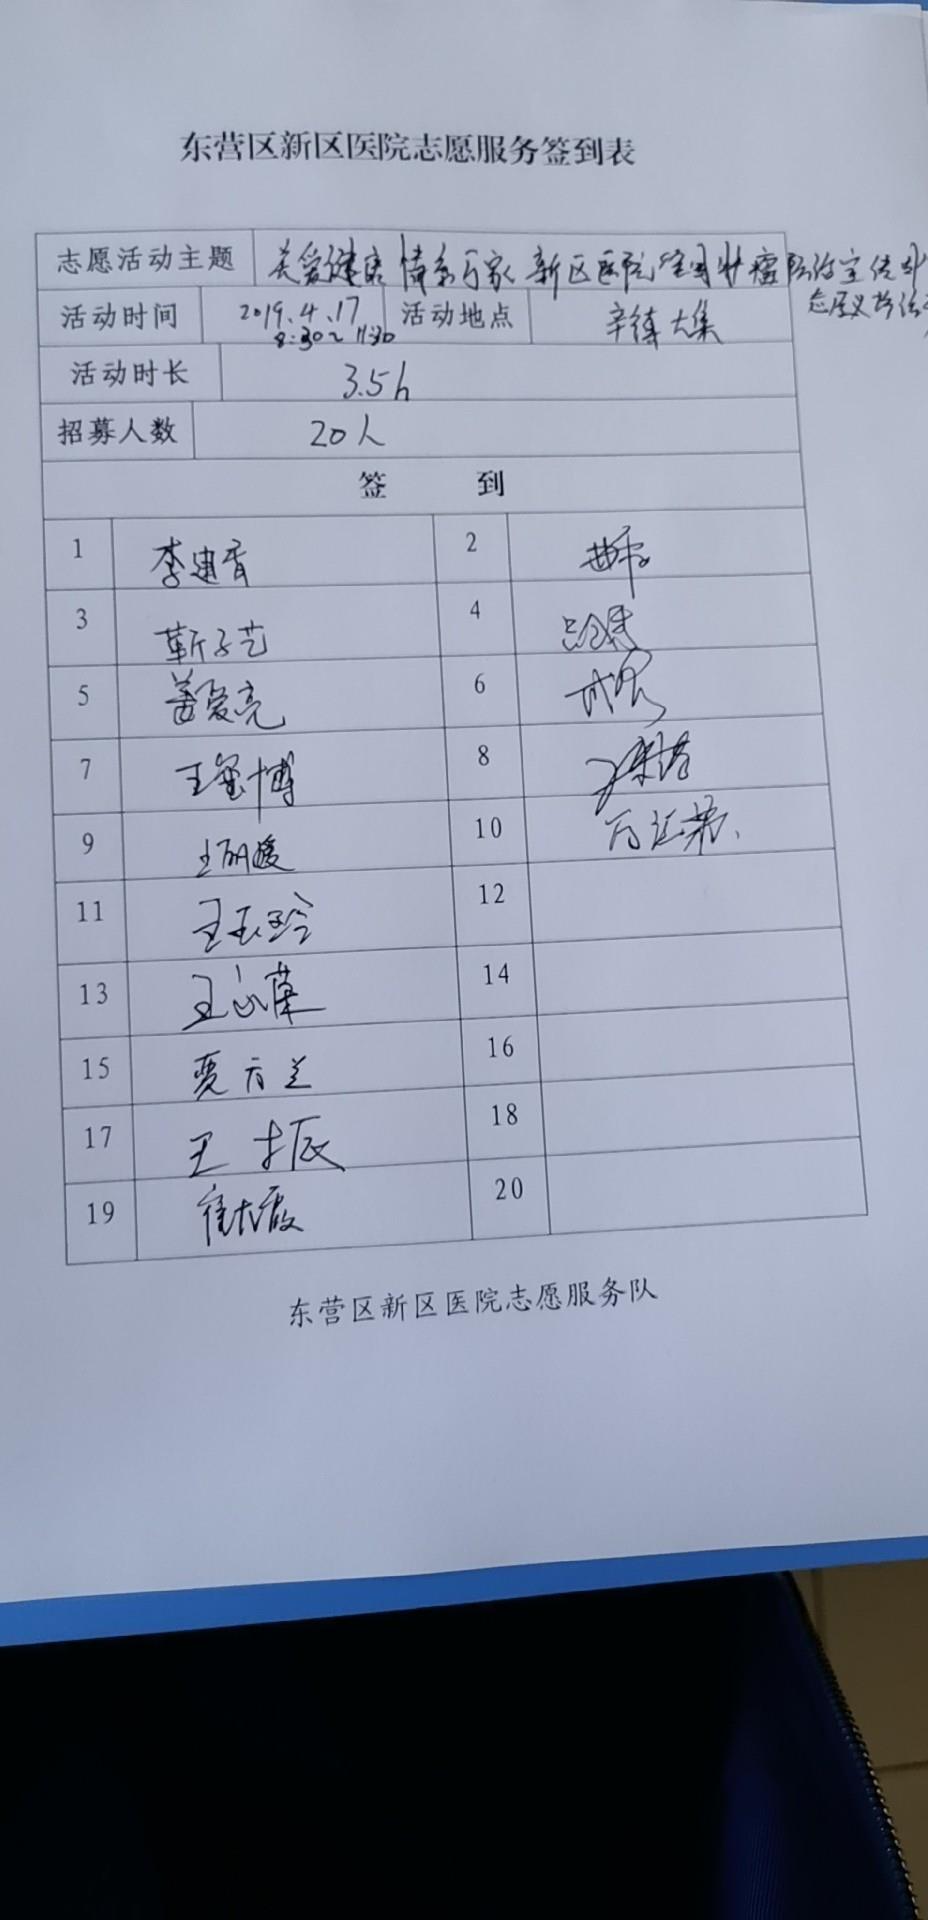 东营区新区医院志愿服务签到表
志愿活动主题 关爱健康 情系万家 新区医院“全国肿瘤防治宣传
活动时间 2019.4.17 活动地点 辛镇大集
8:30~11:30
活动时长 3.5h
招募人数 20人
签 到
1 李建香 2
3 靳子艺 4
5 爱亮 6
7 王玺博 8
9 王丽媛 10
11 王玉玲 12
13 王 14
15 贾方兰 16
17 王振 18
19 崔大霞 20
东营区新区医院志愿服务队